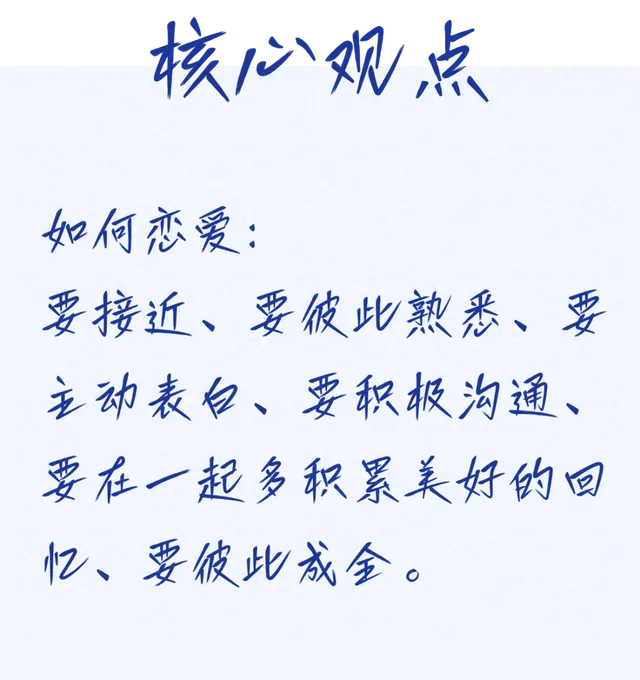 核心观点
如何恋爱：
要接近、要彼此熟悉、要
主动表白、要积极沟通、
要在一起多积累美好的回
忆、要彼此成全。